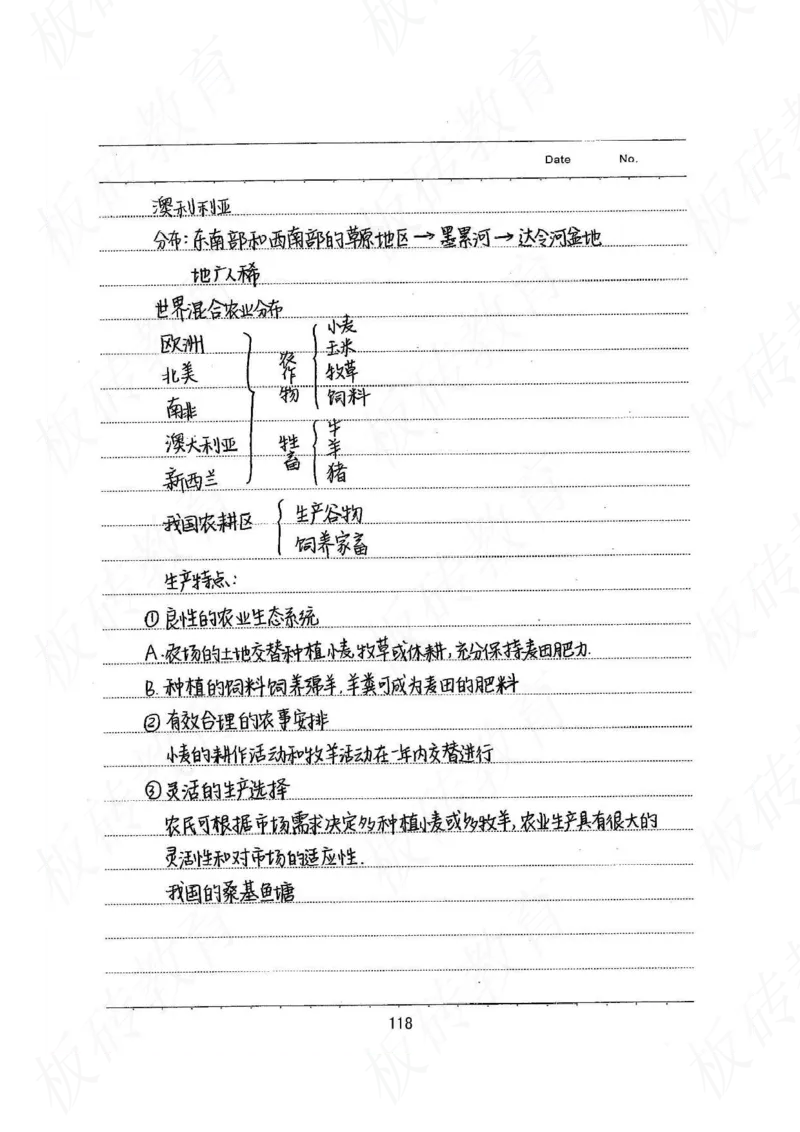 Date No.
澳利利亚
分布:东南部和西南部的草原地区→墨累河→达令河盆地
地广人稀
世界混合农业分布
欧洲
北美
南非
澳大利亚
新西兰
农作物
小麦
玉米
牧草
饲料
牲畜
牛
羊
猪
我国农耕区
生产谷物
饲养家畜
生产特点:
①良性的农业生态系统
A.农场的土地交替种植小麦,牧草或休耕,充分保持麦田肥力.
B.种植的饲料饲养绵羊,羊粪可成为麦田的肥料
②有效合理的农事安排
小麦的耕作活动和牧羊活动在一年内交替进行
③灵活的生产选择
农民可根据市场需求决定多种植小麦或多牧羊,农业生产具有很大的
灵活性和对市场的适应性.
我国的桑基鱼塘
118
板砖教育